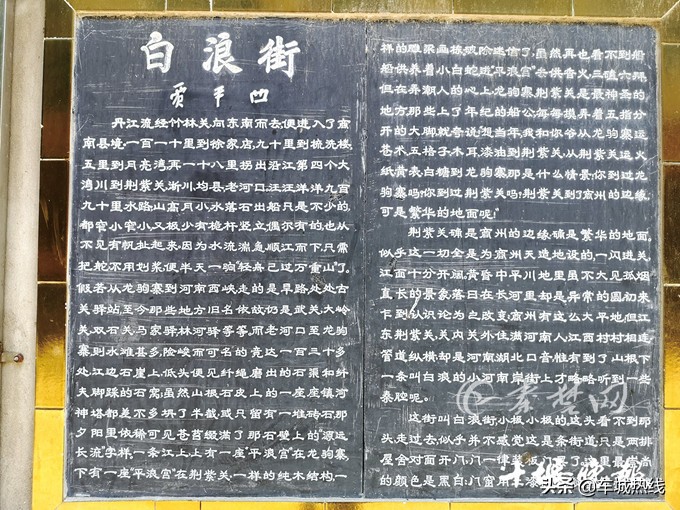 白浪街
贾平凹
丹江流经竹林关向东南而去便进入了商
南县境一百一十里到徐家店九十里到梳洗楼
五里到月亮湾再一十八里拐出沿江第四个大
湾川到荆紫关淅川均县老河口汪汪洋洋九百
九十里水路山高月小水落石出船只是不少的
都窄小窄小又极少有桅杆竖立偶尔有的也从
不见有帆扯起来因为水流湍急顺江而下只需
把舵不用划桨便半天一晌“轻舟已过万重山”了
假若从龙驹寨到河南西峡走的是旱路处处古
关驿站至今那些地方旧名依故仍是武关大岭
关双石关马家驿林河驿等等而老河口至龙驹
寨则水滩甚多险峻而可名的竟达一百三十多
处江边石崖上低头便见纤绳磨出的石渠和纤
夫脚踩的石窝虽然山根石皮上的一座座镇河
神塔都差不多坍了半截或只留有一堆砖石那
夕阳里依稀可见苍苔缀满了那石壁上的“源远
长流”字样一条江上上有一座“平浪宫”在龙驹寨
下有一座“平浪宫”在荆紫关一样的纯木结构一
样的雕梁画栋破除迷信了虽然再也看不到船
船供养着小白蛇进“平浪宫”去供香火三磕六拜
但在弄潮人的心上龙驹寨荆紫关是最神圣的
地方那些上了年纪的船公每每摸弄着五指分
开的大脚就夸说想当年我和你爷从龙驹寨运
苍术五倍子木耳漆油到荆紫关从荆紫关运火
纸黄表白糖到龙驹寨那是什么情景你到过龙
驹寨吗?你到过荆紫关吗?荆紫关到了商州的边缘
可是繁华的地面呢!
荆紫关确是商州的边缘确是繁华的地面。
似乎这一切全是为商州天造地设的一闪进关
江面十分开阔黄昏中平川地里虽不大见孤烟
直长的景象落日在长河里却是异常的圆初来
乍到认识论为之改变商州有这么大平地但江
东荆紫关关内关外住满河南人江西村村相连
管道纵横却是河南湖北口音惟有到了山根下
一条叫白浪的小河南岸街上才略略听到一些
秦腔呢。
这街叫白浪街小极小极的这头看不到那
头走过去似乎并不感觉这是条街道只是两排
屋舍对面开门门一律装板门罢了这里最崇尚
的颜色是黑白门窗用
秀楚网
十堰晚报
头条@车城热线